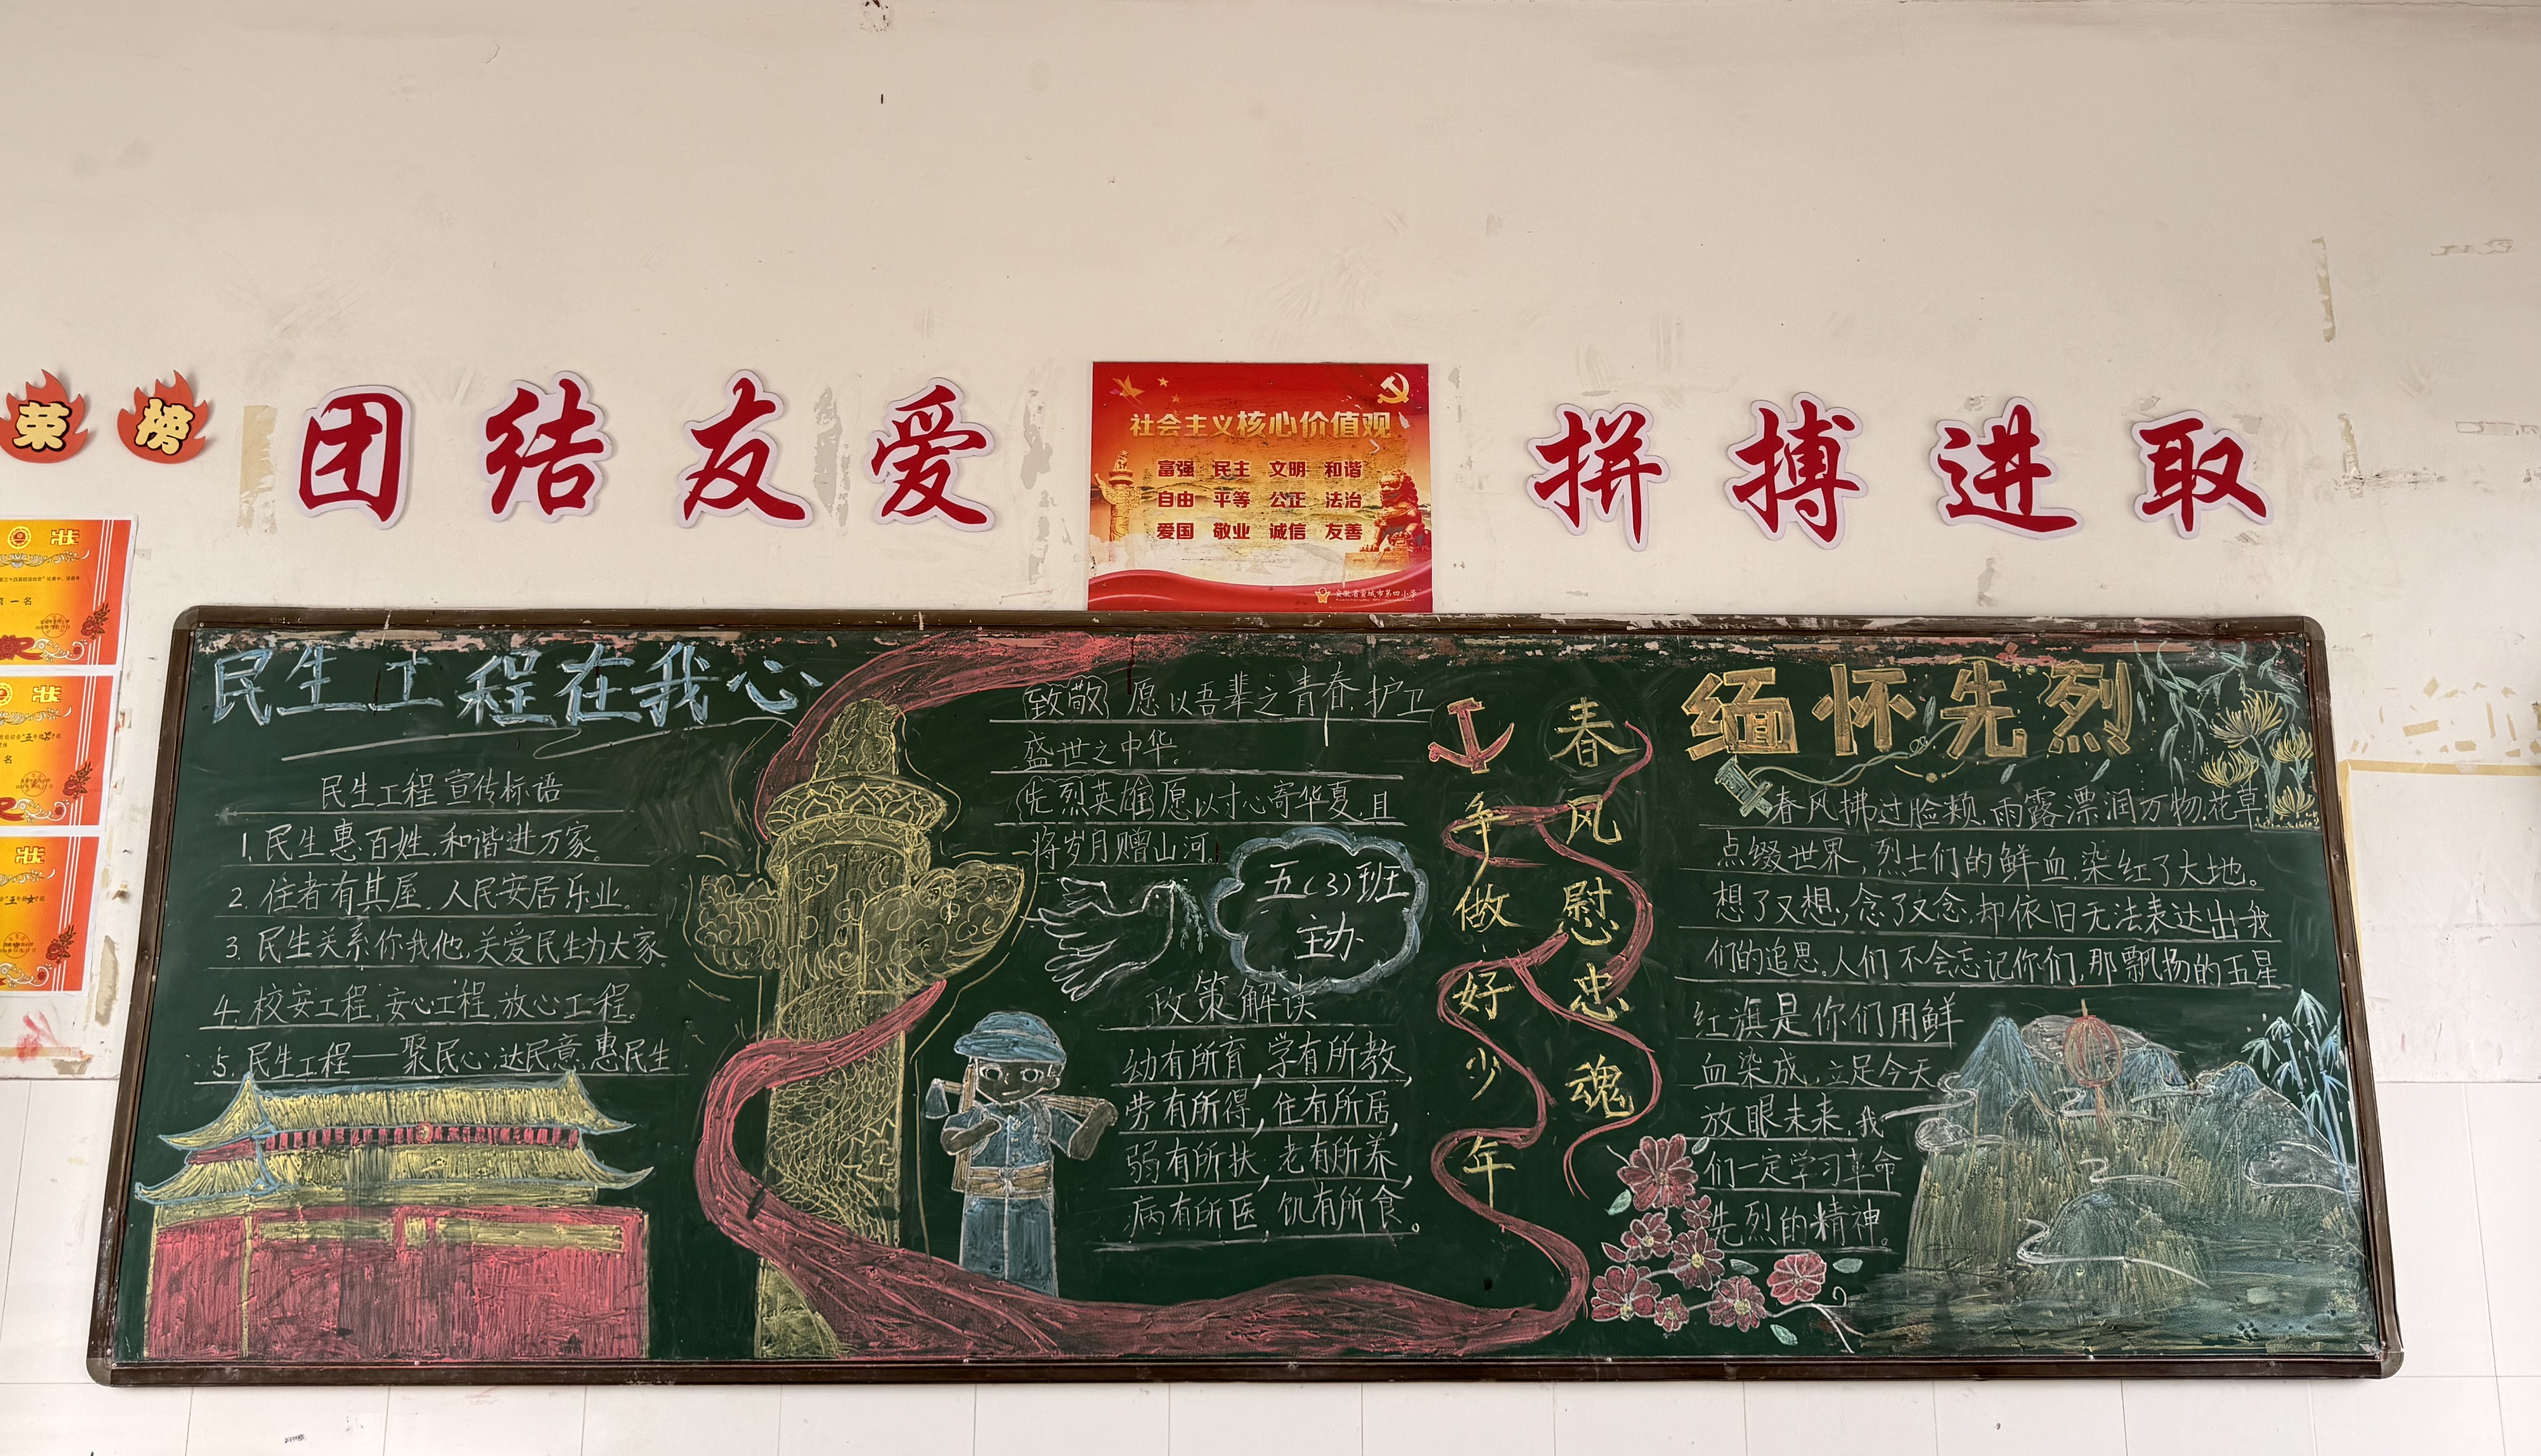 荣
榜
团结友爱
社会主义核心价值观
富强 民主 文明 和谐
自由 平等 公正 法治
爱国 敬业 诚信 友善
安徽省宣城市第四小学
拼搏进取
状
第一名
状
名
状
民生工程在我心
民生工程宣传标语
1.民生惠百姓,和谐进万家。
2.住者有其屋,人民安居乐业。
3.民生关系你我他,关爱民生为大家。
4.校安工程,安心工程,放心工程。
5.民生工程——聚民心,达民意,惠民生.
致敬 愿以吾辈之青春,护卫
盛世之中华。
先烈英雄 愿以寸心寄华夏,且
将岁月赠山河。
五(3)班
主办
政策解读
幼有所育,学有所教,
劳有所得,住有所居,
弱有所扶,老有所养,
病有所医,饥有所食。
春风慰忠魂
争做好少年
缅怀先烈
春风拂过脸颊,雨露漂润万物,花草
点缀世界,烈士们的鲜血,染红了大地。
想了又想,念了又念,却依旧无法表达出我
们的追思。人们不会忘记你们,那飘扬的五星
红旗是你们用鲜
血染成,立足今天,
放眼未来,我
们一定学习革命
先烈的精神。